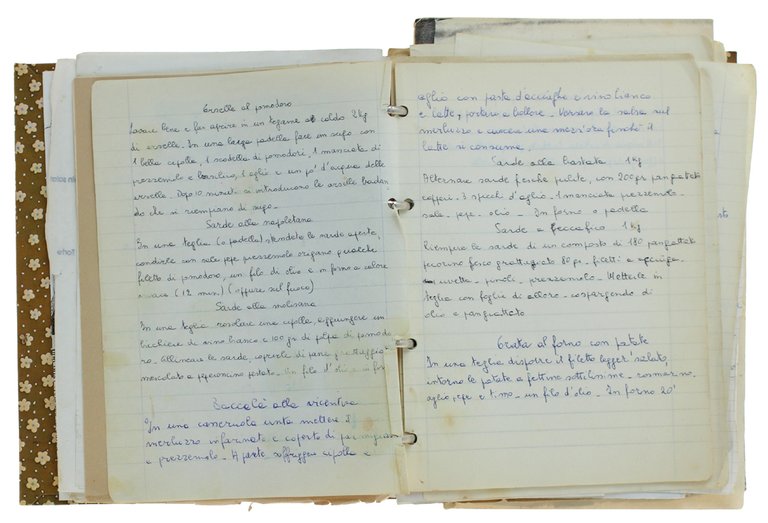 Arselle al pomodoro
lavare bene e fai aprire in un tegame al caldo 2 kg
di arselle. In una larga padella fare un sugo con
1 bella cipolla, 1 scodella di pomodori, 1 manciata di
prezzemolo e basilico, 1 aglio e un po' d'acqua delle
arselle. Dopo 10 minuti ci introducono le arselle badan
do che si riempiano di sugo.
Sarde alla napoletana
In una teglia (o padella) stendete le sarde aperte,
condirle con sale pepe prezzemolo origano qualche
filetto di pomodoro, un filo di olio e in forno a calore
(12 min.) (oppure sul fuoco)
Sarde alla molisana
In una teglia rosolare una cipolla, aggiungere un
bicchiere di vino bianco e 100 gr di polpa di pomodo
ro. Allineare le sarde, coprirle di pane grattuggia
mescolato a peperoncino pestato. Un filo d'olio e in for
Baccalà alla vicentina
In una casseruola unta mettere il
merluzzo infarinato e coperto di parmigiano
e prezzemolo. A parte soffriggere cipolla e
aglio con pasta d'acciughe e vino bianco
e latte, portare a bollore. Versare la salsa sul
merluzzo e cuocere una mezz'ora finchè il
latte si consuma.
Sarde alla 1 kg
Alternare sarde fresche pulite, con 200 gr pangrattato
capperi - 3 spicchi d'aglio - 1 manciata prezzemolo -
sale - pepe - olio - In forno o padella
Sarde a beccafico - 1 kg
Riempire le sarde di un composto di 180 pangrattato
pecorino fresco grattugiato 80 gr - filetti e acciuga
uvetta - pinoli - prezzemolo - Metterle in
teglia con foglie di alloro - cospargendo di
olio e pangrattato
Orata al forno con patate
In una teglia disporre il filetto legger' salato,
intorno le patate a fettine sottilissime - rosmarino,
aglio, pepe e timo - un filo d'olio - In forno 20'
Torte